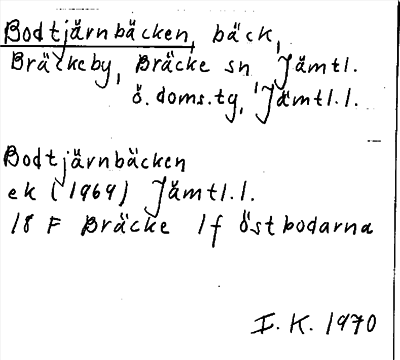 Bodtjärnbäcken, bäck,
Bräckeby, Bräcke sn Jämtl.
ö. doms.tg, Jämtl.l.
Bodtjärnbäcken
ek (1969) Jämtl.l.
18 F Bräcke 1f östbodarna
I.K. 1970